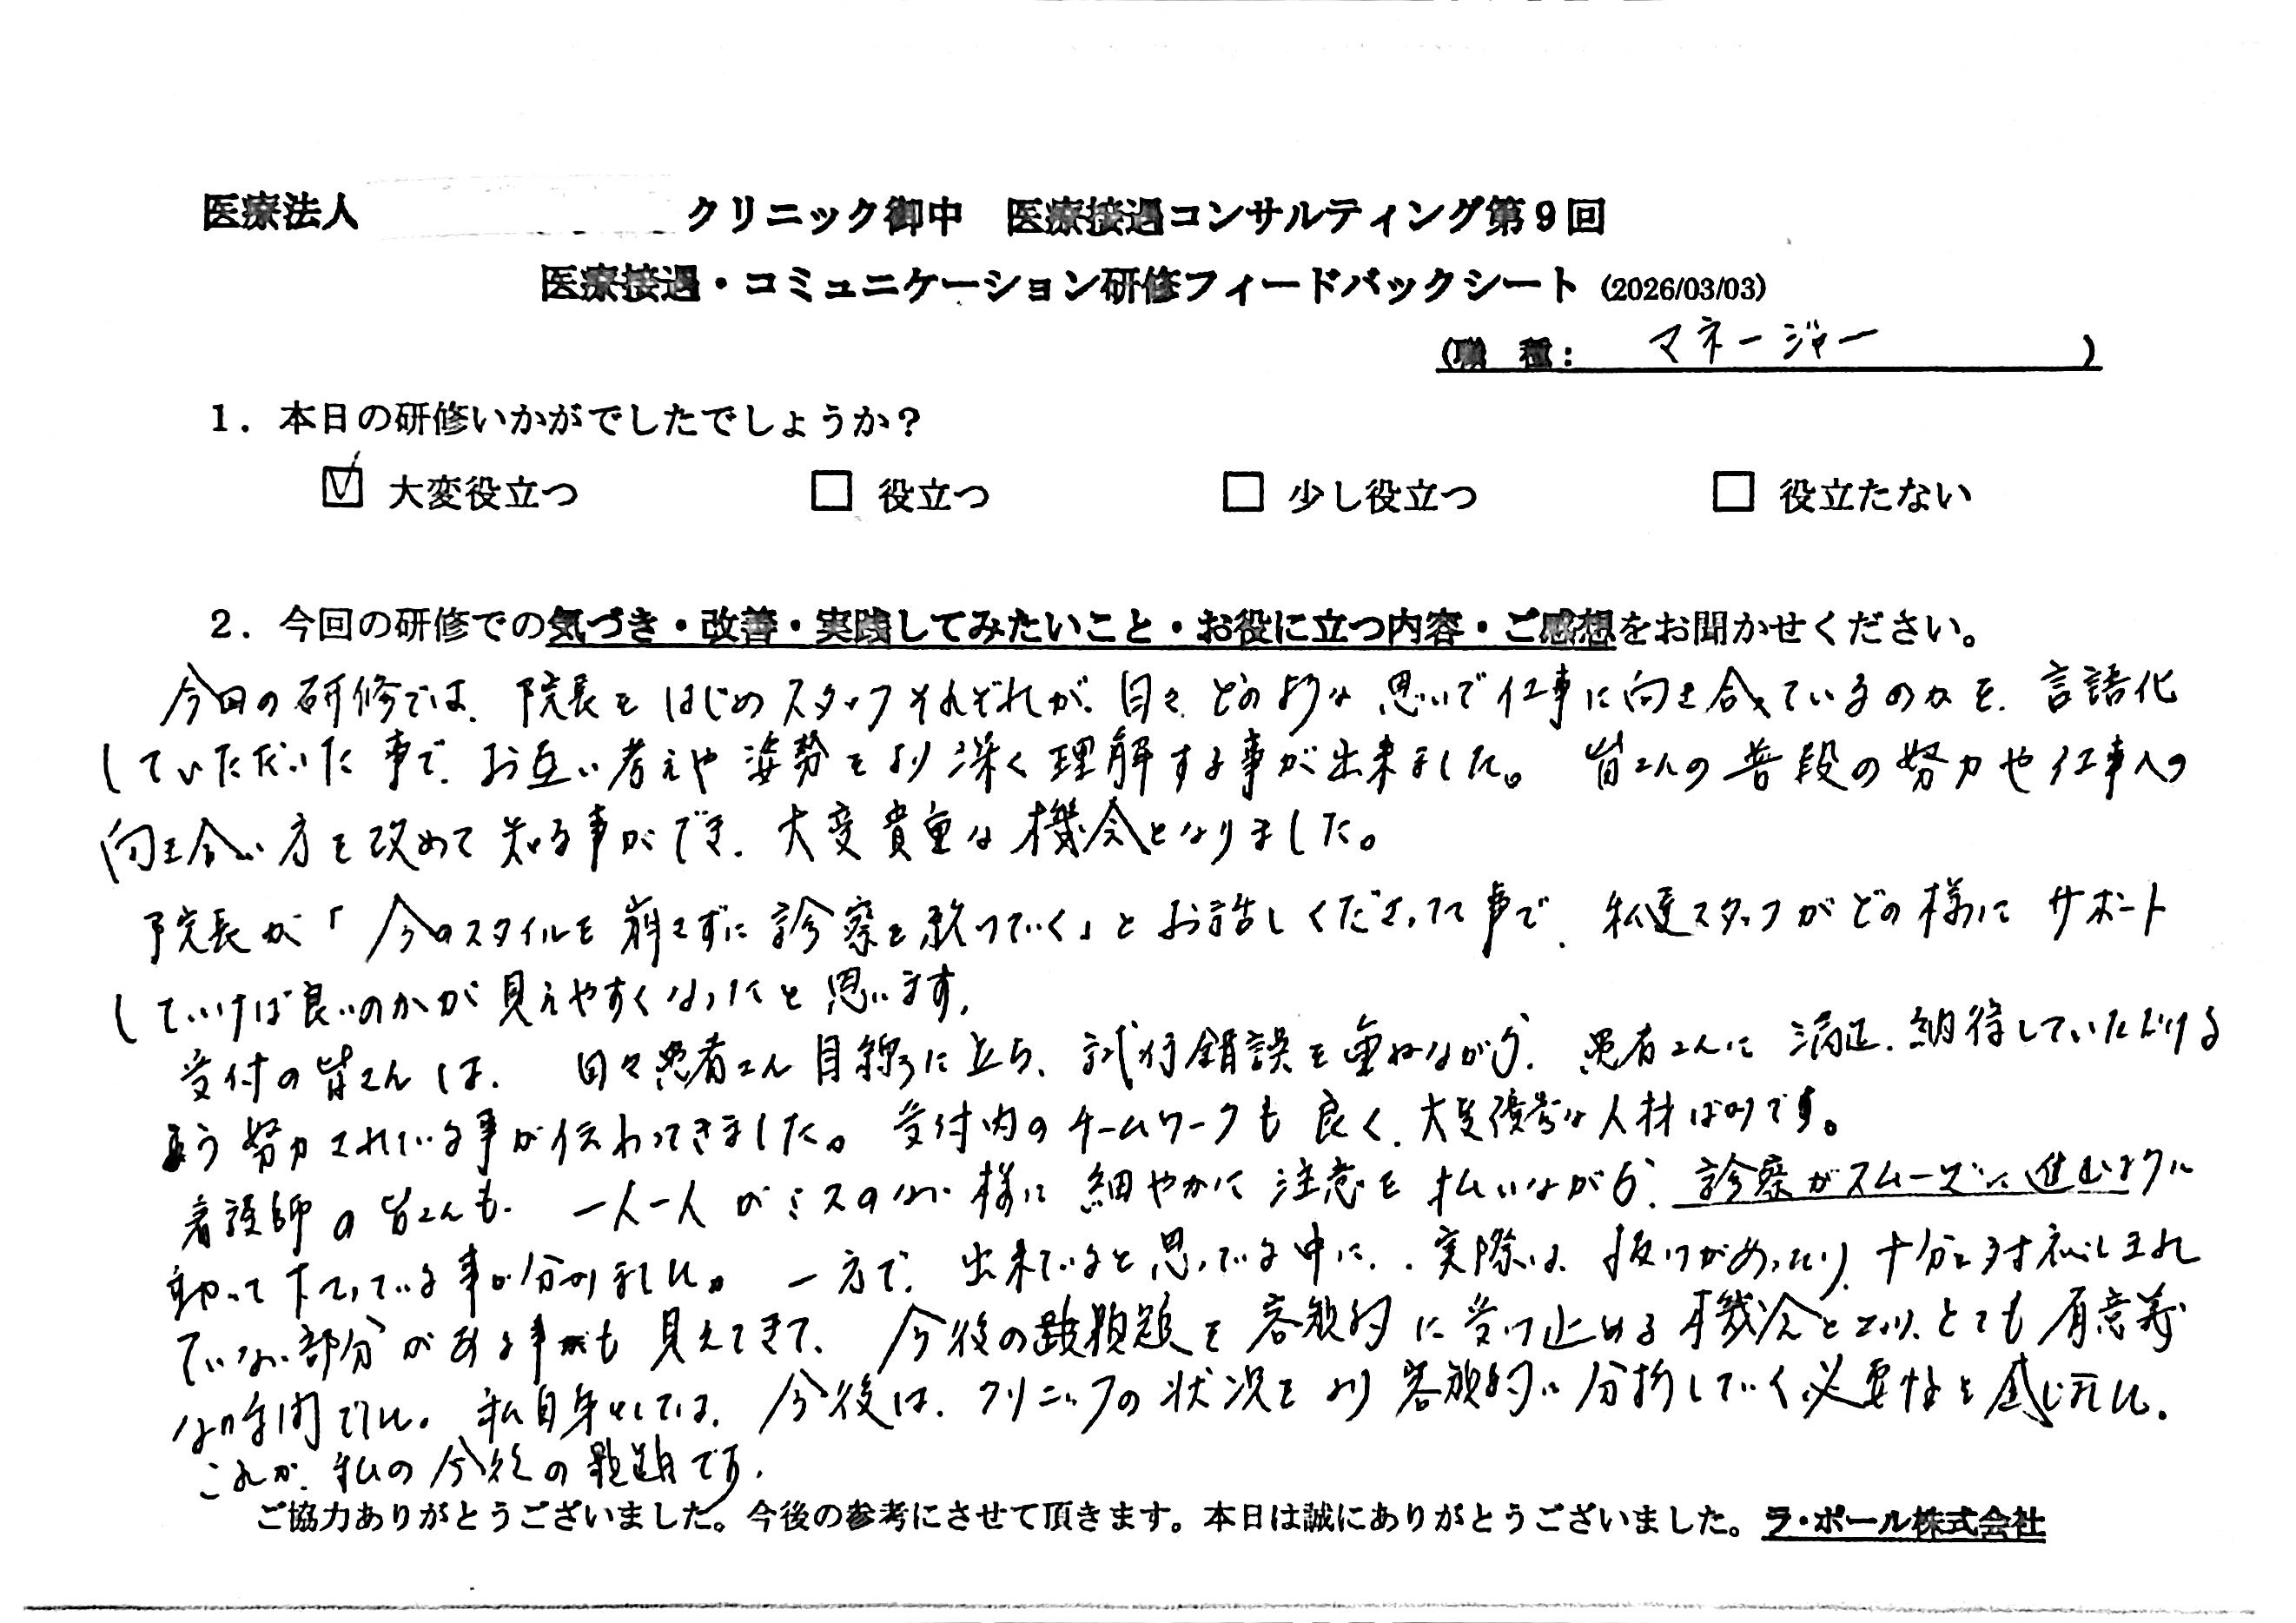 医療法人 クリニック御中 医療接遇コンサルティング第9回
医療接遇・コミュニケーション研修フィードバックシート (2026/03/03)
(職 種: マネージャー )
1. 本日の研修いかがでしたでしょうか?
☑ 大変役立つ □ 役立つ □ 少し役立つ □ 役立たない
2. 今回の研修での気づき・改善・実践してみたいこと・お役に立つ内容・ご感想をお聞かせください。
今回の研修では、院長をはじめスタッフそれぞれが、日々どのような思いで仕事に向き合っているのかを、言語化
していただいた事で、お互い考えや姿勢をより深く理解する事が出来ました。皆さんの普段の努力や仕事への
向き合い方を改めて知る事ができ、大変貴重な機会となりました。
院長が「今のスタイルを崩さずに診察を続けていく」とお話しくださった事で、私達スタッフがどの様にサポート
していけば良いのかが見えやすくなったと思います。
受付の皆さんは、日々患者さん目線に立ち、試行錯誤を重ねながら、患者さんに満足、納得していただける
よう努力されている事が伝わってきました。受付内のチームワークも良く、大変優秀な人材ばかりです。
看護師の皆さんも、一人一人がミスのない様に細やかに注意を払いながら、診察がスムーズに進むように
動いて下さっている事が分かりました。一方で、出来ていると思っている中に、実際は、抜けがあったり、十分に対応しきれ
ていない部分がある事も見えてきて、今後の課題を客観的に受け止める機会となり、とても有意義
な時間でした。私自身としては、今後は、クリニックの状況をより客観的に分析していく必要性を感じました。
これが、私の今後の課題です。
ご協力ありがとうございました。今後の参考にさせて頂きます。本日は誠にありがとうございました。ラ・ポール株式会社